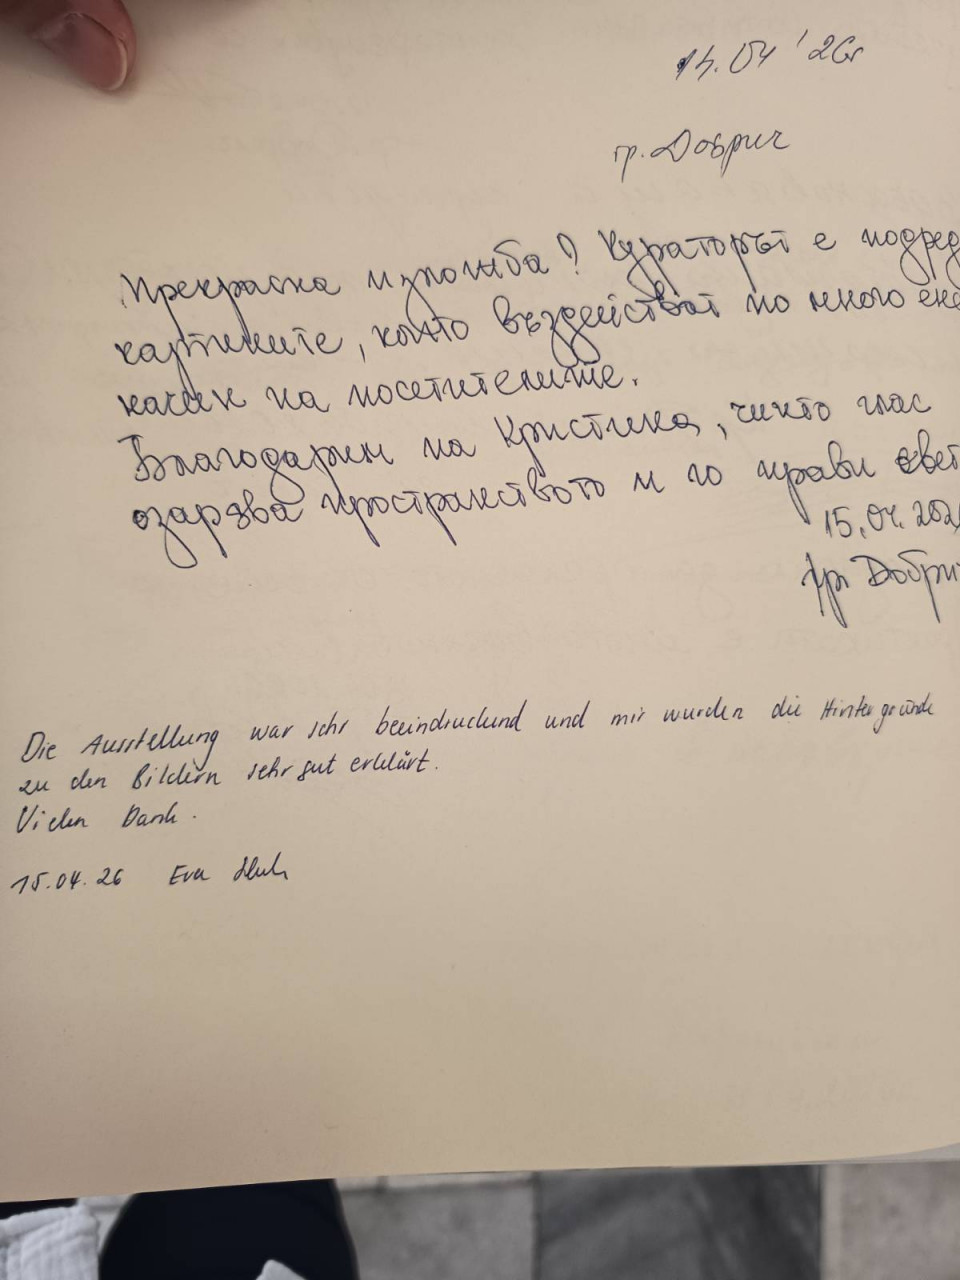 14.04 '26г
гр. Добрич
Прекрасна изложба! Кураторът е подред
картините, които въздействат по много
начин на посетителите.
Благодарим на Кристина, чийто глас
озарява пространството и го прави свет
15.04.202
гр Добри
Die Ausstellung war sehr beeindruckend und mir wurden die Hintergründe
zu den Bildern sehr gut erklärt.
Vielen Dank.
15.04.26 Eva